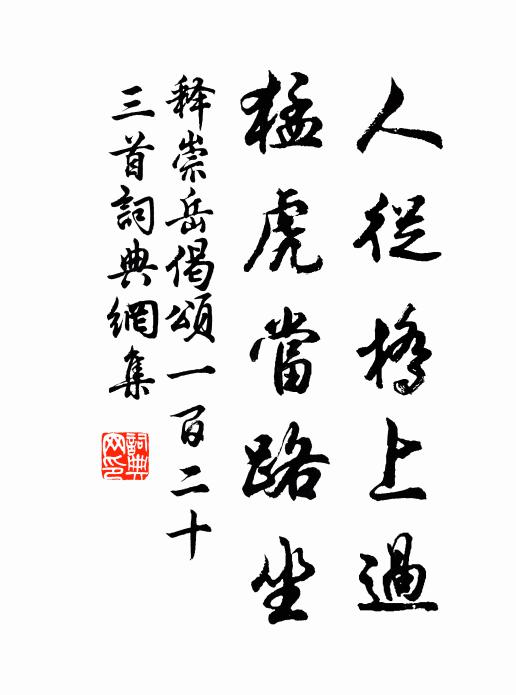 人從橋上過
猛虎當路坐
释崇岳偈頌一百二十
三首詞典網集
詞典网印